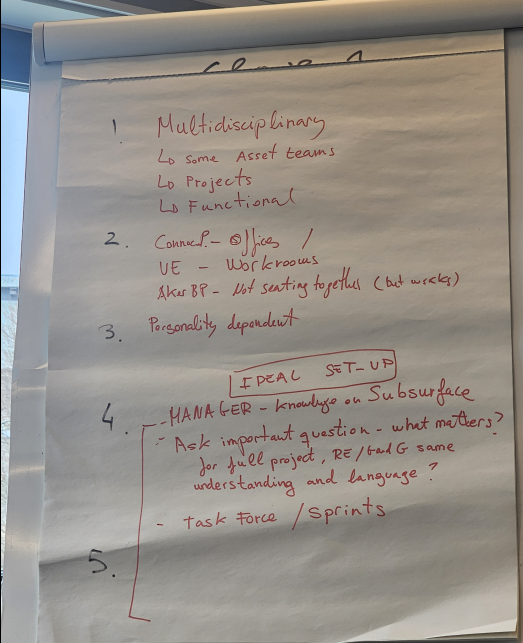 1. Multidisciplinary
↳ Some Asset teams
↳ Projects
↳ Functional
2. - Offices /
VE - Workrooms
Aker BP - Not seating together (but works)
3. Personality dependent
IDEAL SET-UP
4. - MANAGER - knowledge on Subsurface
- Ask important question - what matters?
for full project, RE/GandG same
understanding and language?
- Task Force / Sprints
5.